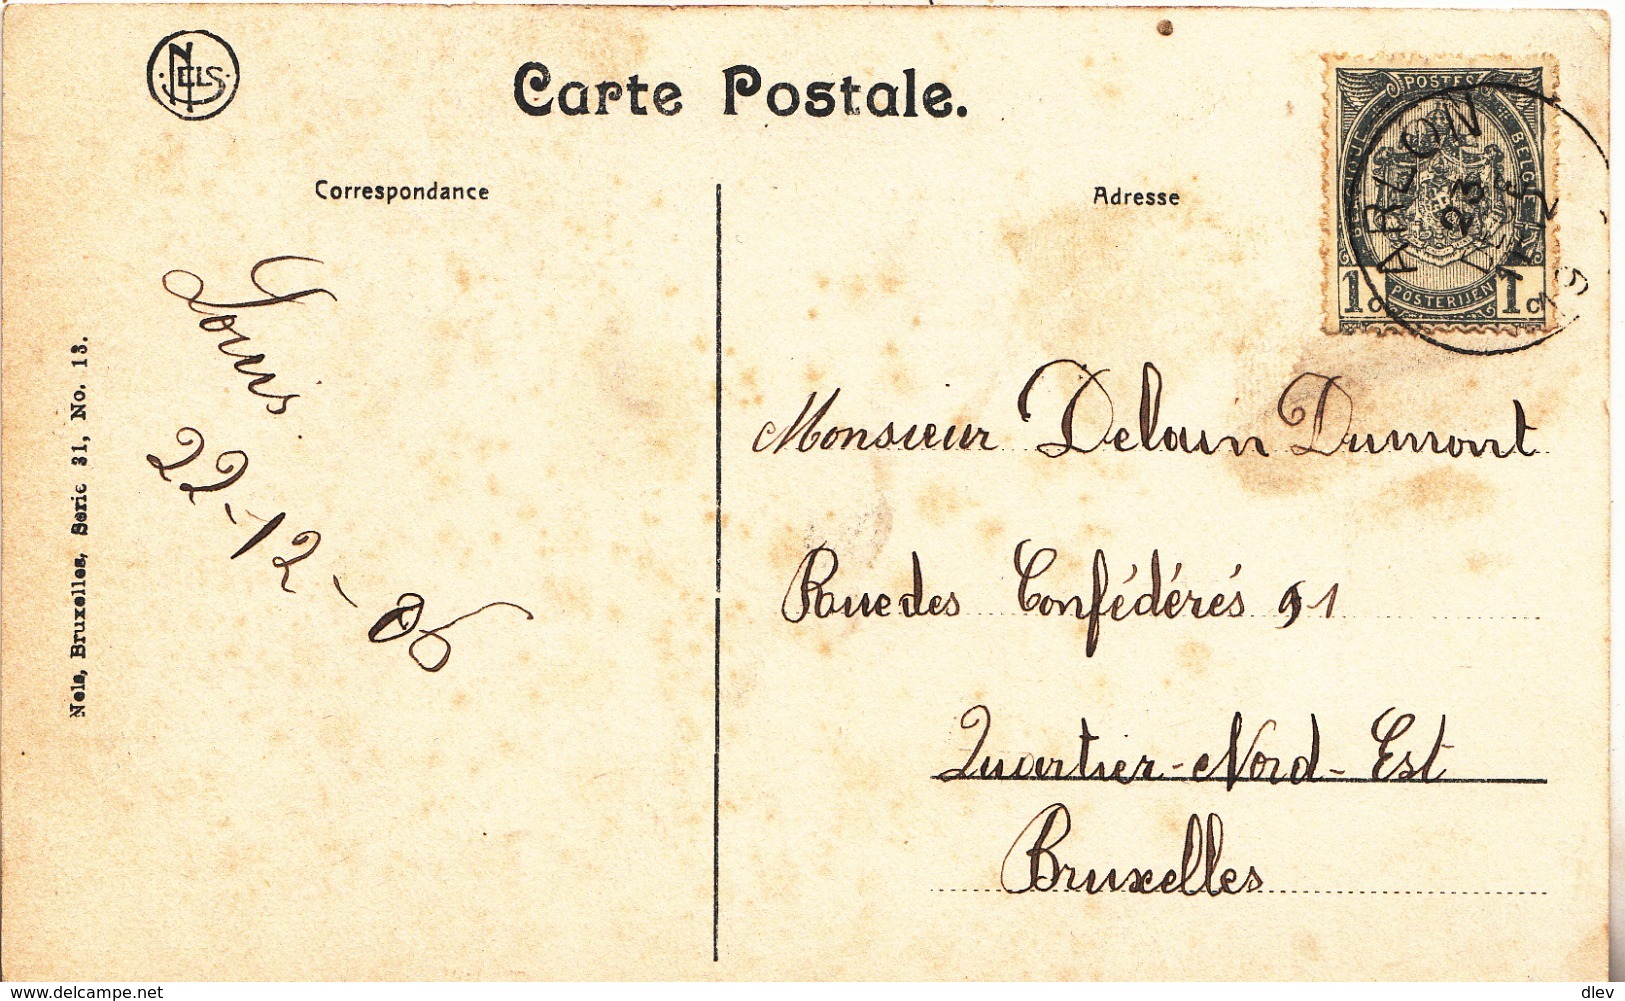 NELS
Carte Postale.
Correspondance
Adresse
POSTES
BELGIQUE
POSTERIJEN
1c 1c
ARLON
23
DEC
Louis.
22-12-06
Nels, Bruxelles, Serie 31, No. 13.
Monsieur Delain Dumont
Rue des Confédérés 91
Quartier-Nord-Est
Bruxelles
www.delcampe.net
dlev